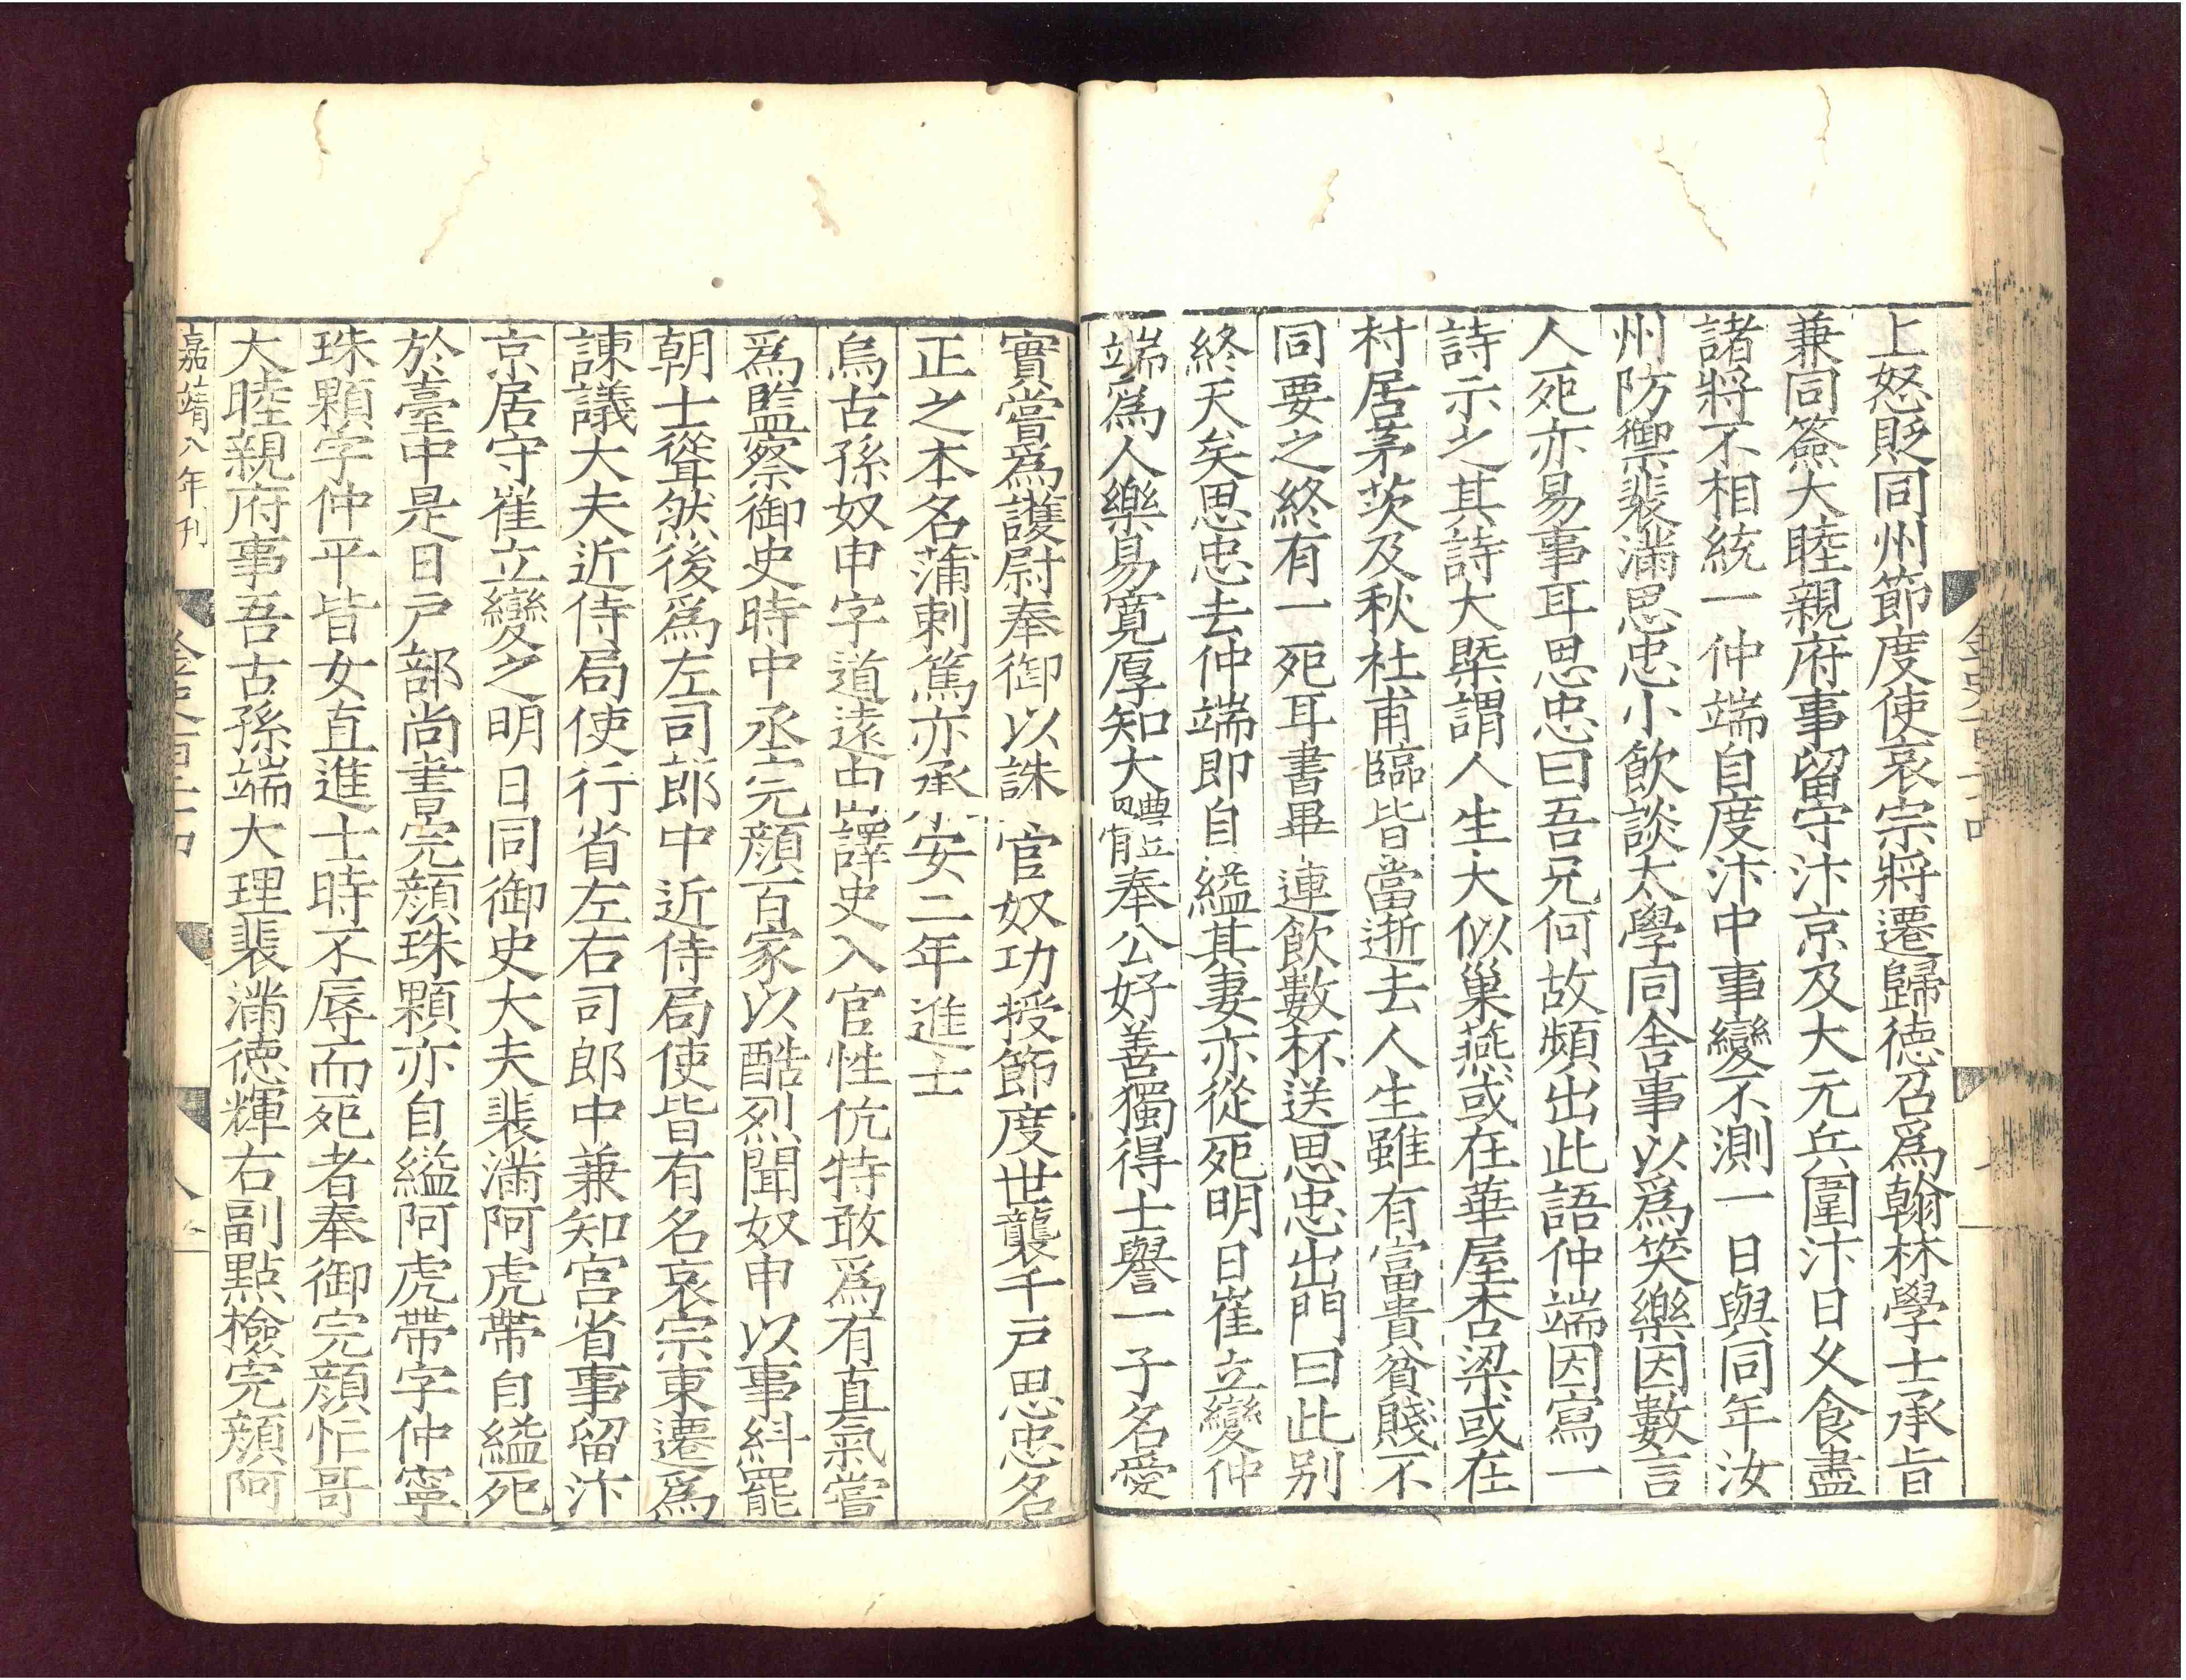 上怒貶同州節度使哀宗將遷歸德召爲翰林學士承旨
兼同簽大睦親府事留守汴京及大元兵圍汴日久食盡
諸將不相統一仲端自度汴中事變不測一日與同年汝
州防禦裴滿思忠小飲談太學同舍事以爲笑樂因數言
人死亦易事耳思忠曰吾兄何故頻出此語仲端因寫一
詩示之其詩大槩謂人生大似巢燕或在華屋杏梁或在
村居茅茨及秋社甫臨皆當逝去人生雖有富貴貧賤不
同要之終有一死耳書畢連飲數杯送思忠出門曰此别
終天矣思忠去仲端即自縊其妻亦從死明日崔立變仲
端爲人樂易寛厚知大體奉公好善獨得士譽一子名愛
實嘗爲護尉奉御以誅官奴功授節度世襲千户思忠名
正之本名蒲剌篤亦承安二年進士
烏古孫奴申字道遠由譯史入官性伉特敢爲有直氣嘗
爲監察御史時中丞完顔百家以酷烈聞奴申以事糾罷
朝士聳然後爲左司郎中近侍局使皆有名哀宗東遷爲
諫議大夫近侍局使行省左右司郎中兼知宮省事留汴
京居守崔立變之明日同御史大夫裴滿阿虎帶自縊死
於臺中是日户部尚書完顔珠顆亦自縊阿虎帶字仲寧
珠顆字仲平皆女直進士時不辱而死者奉御完顔忙哥
大睦親府事吾古孫端大理裴滿德輝右副點檢完顔阿
嘉靖八年刊